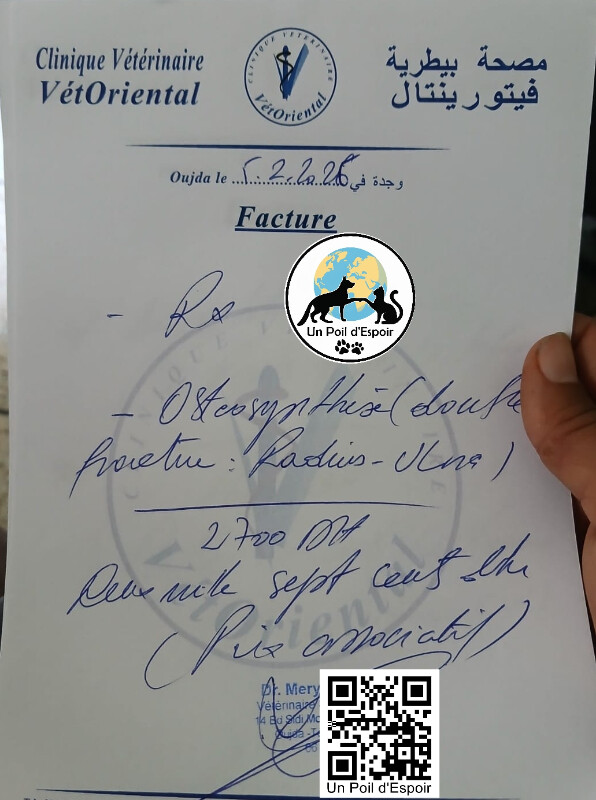 Clinique Vétérinaire
VétOriental
مصحة بيطرية
فيتورينتال
CLINIQUE VÉTÉRINAIRE
VétOriental
Oujda le 5.2.2026 وجدة في
Facture
- Rx
Un Poil d'Espoir
- Ostéosynthèse (double
fracture : Radius - Ulna)
2700 DH
Deux mille sept cent dhs
(Prix associatif)
VétOriental
Dr. Mery
Vétérinaire
14 Bd Sidi
Oujda
Un Poil d'Espoir